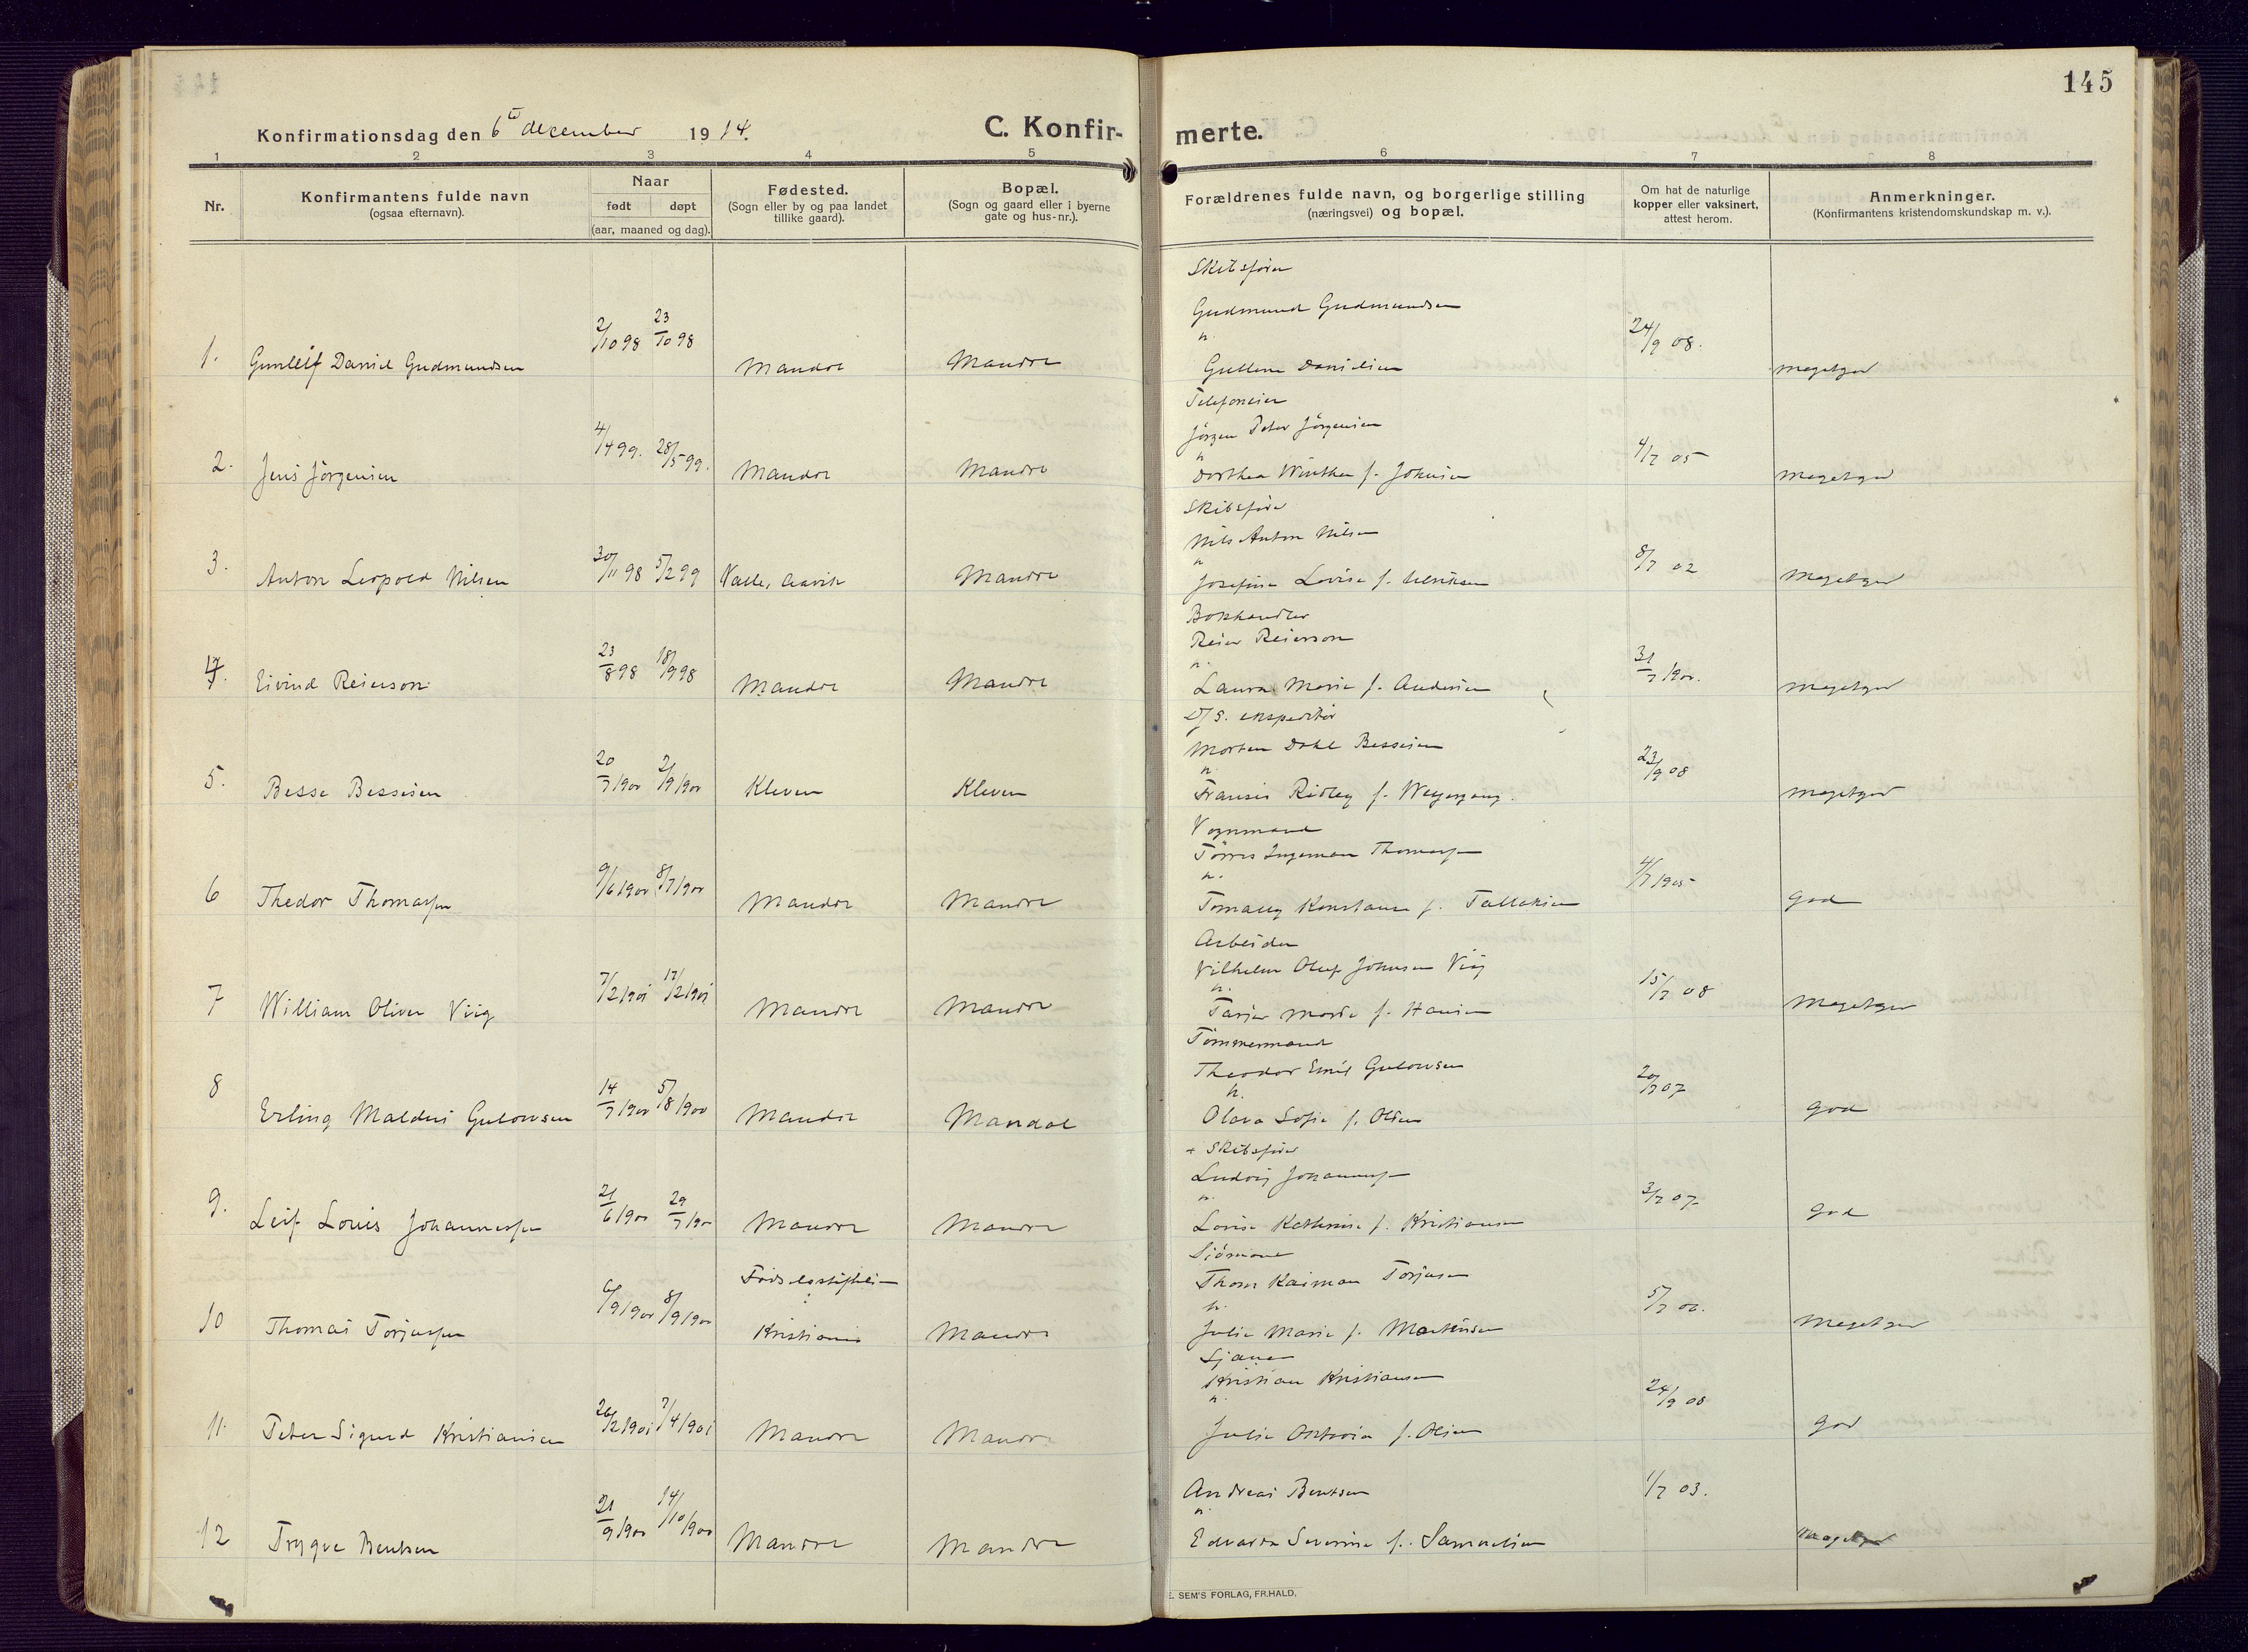 145
Konfirmationsdag den 6te december 1914.
C. Konfirmerte.
1 2 3 4 5 6 7 8
Nr.
Konfirmantens fulde navn
(ogsaa efternavn).
Naar
født døpt
(aar, maaned og dag).
Fødested.
(Sogn eller by og paa landet
tillike gaard).
Bopæl.
(Sogn og gaard eller i byerne
gate og hus-nr.).
Forældrenes fulde navn, og borgerlige stilling
(næringsvei) og bopæl.
Om hat de naturlige
kopper eller vaksinert,
attest herom.
Anmerkninger.
(Konfirmantens kristendomskundskap m. v.).
Skibsfører
Gudmund Gudmundsen
1. Gunleif Daniel Gudmundsen 2/10 98 23/10 98 Mandal Mandal
Danielsen 24/9 08. megetgod
Jørgen Peter Jörgensen
2. Jens Jörgensen 4/4 99. 28/5 99. Mandal Mandal
Dorthea Winther f. Johnsen 4/7 05 megetgod
Skibsfører
Nils Anton Nilsen
3. Anton Leopold Nilsen 30/11 98 5/2 99 Valle, Mandal
Josefine Lovise f. 8/7 02 megetgod
Bokhandler
Reier Reierson
4. Eivind Reierson 23/8 98 18/9 98 Mandal Mandal
Laura Marie f. Andersen 31/7 1900. megetgod
D/S. ekspeditör
Morten Dahl Bessesen
5. Besse Bessesen 20/7 1900 2/9 1900 Kleven Kleven
Ridley f. 23/9 08 megetgod
Vognmand
Törres Ingeman Thomassen
6 Thedor Thomassen 9/6 1900 8/7 1900 Mandal Mandal
Konstanse f. Tallaksen 4/7 1905 god
Arbeider
Vilhelm Oluf Johnsen Viig
7 William Oliver Viig 7/2 1901 17/2 1901 Mandal Mandal
Marie f. Hansen 15/7 08 Megetgod
Tömmermand
Theodor Emil Gulowsen
8 Erling Maldus Gulowsen 14/7 1900 5/8 1900 Mandal Mandal
Olava Sofie f. Olsen 20/7 07 god
+ Skibsfører
Ludvig Johannessen
9. Leif Louis Johannessen 21/6 1900 29/7 1900 Mandal Mandal
Lovise Kathrine f. Kristiansen 3/7 07 god
Sjömand
Thom Kaiman Torjusen
Fødselsstiftelsen
10 Thomas Torjussen 6/9 1900 8/9 1900 Kristiania Mandal
Julie Marie f. Martinsen 5/7 Megetgod
Kristian Kristiansen
11. Peter Sigurd Kristiansen 26/2 1901 7/4 1901 Mandal Mandal
Julie Oktavia f. Olsen 24/9 08 god
Andreas Bentsen
12 Trygve Bentsen 21/9 1900 14/10 1900 Mandal Mandal
Edvarda Severine f. Samuelsen 1/7 03. megetgod
E. SEM'S FORLAG, FR.HALD.